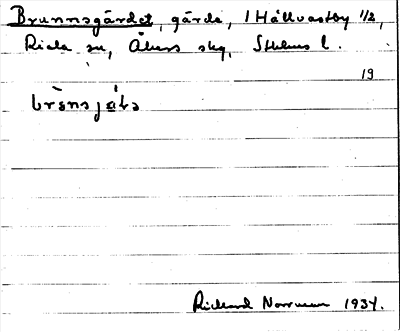 Brunnsgärdet, gärde, 1 Hållvastby 1/2,
Riala sn, Åkers skg, Sthlms l.
19
Richard Norrman 1934.